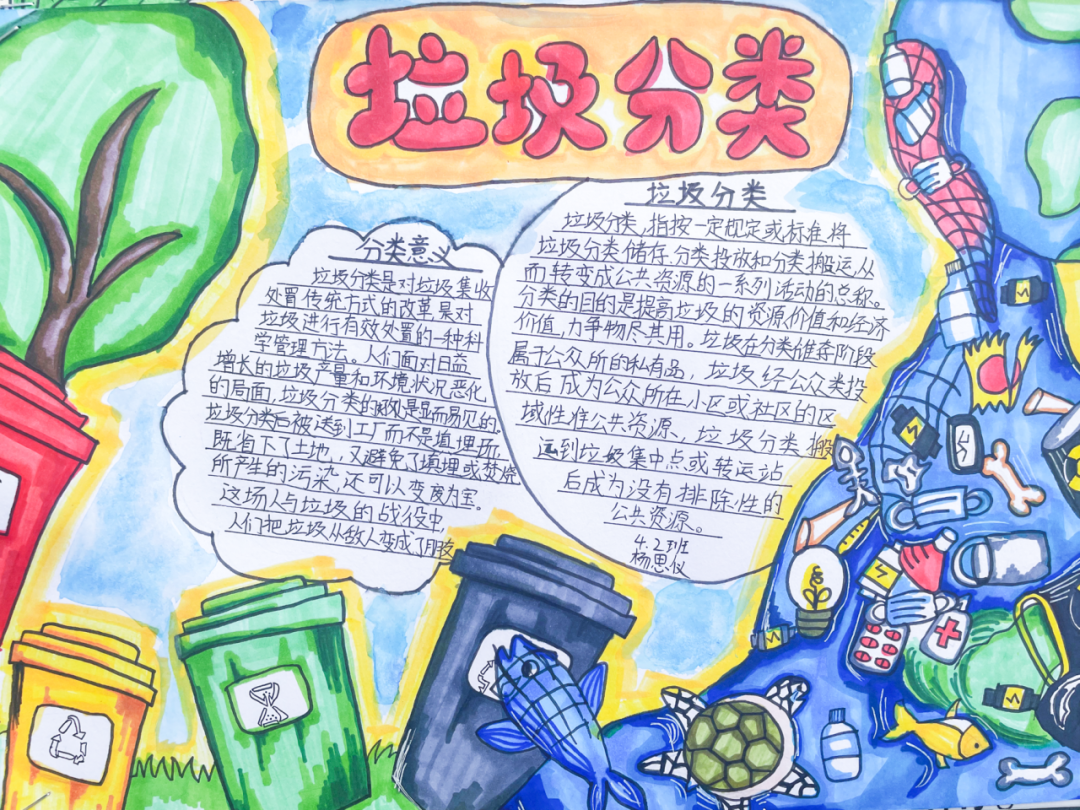 垃圾分类
分类意义
垃圾分类是对垃圾集收
处置传统方式的改革是对
垃圾进行有效处置的一种科
学管理方法。人们面对日益
增长的垃圾产量和环境状况恶化
的局面,垃圾分类的是显而易见的.
垃圾分类后被送到工厂而不是填埋场,
既省下了土地,又避免了填埋或焚烧
所产生的污染,还可以变废为宝。
这场人与垃圾的战役中,
人们把垃圾从敌人变成了朋友
垃圾分类
垃圾分类,指按一定规定或标准将
垃圾分类储存、分类投放和分类搬运,从
而转变成公共资源的一系列活动的总称。
分类的目的是提高垃圾的资源价值和经济
价值,力争物尽其用。垃圾在分类储存阶段
属于公众所的私有品,垃圾经公众类投
放后成为公众所在小区或社区的区
域性准公共资源、垃圾分类搬
运到垃圾集中点或转运站
后成为没有排除性的
公共资源。
4.2班
杨思仪